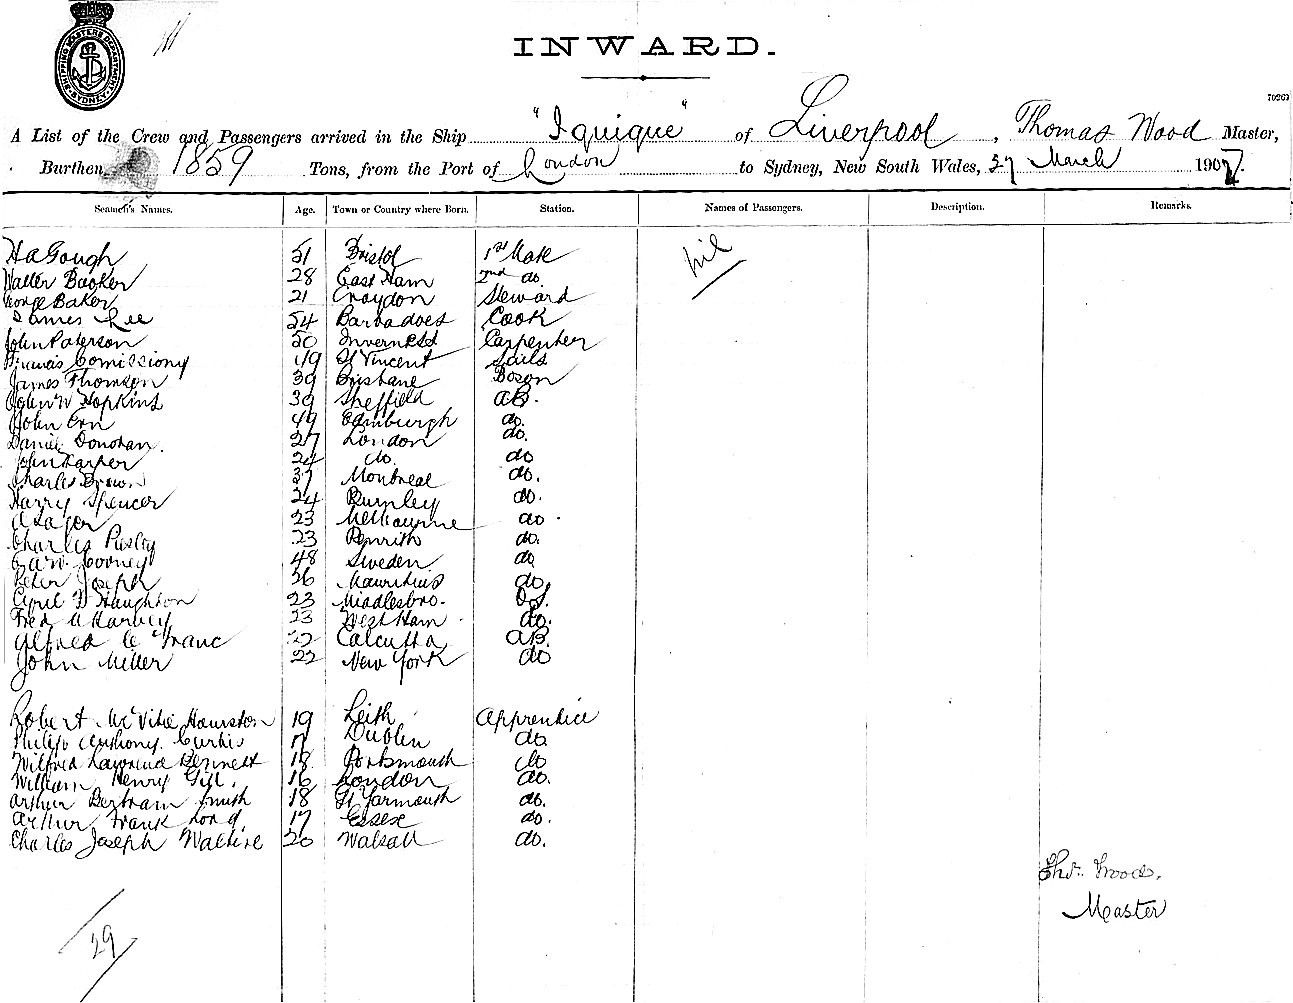 SHIPPING MASTERS DEPARTMENT SYDNEY
INWARD.
70263
A List of the Crew and Passengers arrived in the Ship "Iquique" of Liverpool, Thomas Wood Master,
Burthen 1859 Tons, from the Port of London to Sydney, New South Wales, 27 March 1907.
Seamen's Names. Age. Town or Country where Born. Station. Names of Passengers. Description. Remarks.
H a Gough 51 Bristol 1st Mate nil
Walter Booker 28 East Ham 2nd do
George Baker 21 Croydon Steward
James Lee 54 Barbadoes Cook
John Paterson 50 Inverness Carpenter
Francis Comissiony 49 St Vincent Sails
James Thomson 39 Brisbane Boson
John W Hopkins 39 Sheffield AB.
John Orn 49 Edinburgh do.
Daniel Donovan. 27 London do.
John Harper 24 do. do
Charles Brown 37 Montreal do.
Harry Spencer 24 Burnley do.
23 Melbourne do.
Charles Presley 23 Penrith do.
48 Sweden do
Peter Joseph 56 Mauritius do,
Cyril D Haughton 23 Middlesbro. O.S.
Fred A Harvey 23 West Ham do.
Alfred Le Franc 22 Calcutta AB.
John Miller 22 New York do
Robert McVitie Hourston 19 Leith Apprentice
Philip Anthony Curtis 17 Dublin do.
Wilfred Lawrence Bennett 18 Portsmouth do
William Henry Gill. 16 London do.
Arthur Bertram Smith 18 Gt Yarmouth do.
Arthur Frank Long 17 Essex do.
Charles Joseph 20 Walsall do.
Thos. Wood.
Master
29